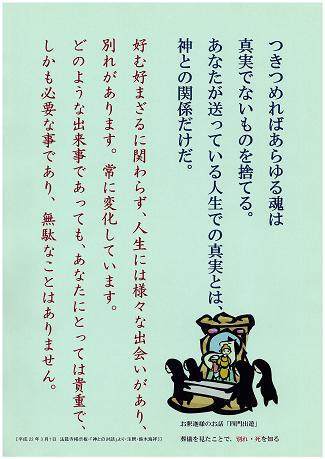 つきつめればあらゆる魂は
真実でないものを捨てる。
あなたが送っている人生での真実とは、
神との関係だけだ。
好む好まざるに関わらず、人生には様々な出会いがあり、
別れがあります。常に変化しています。
どのような出来事であっても、あなたにとっては貴重で、
しかも必要な事であり、無駄なことはありません。
お釈迦様のお話「四門出遊」
葬儀を見たことで、別れ・死を知る